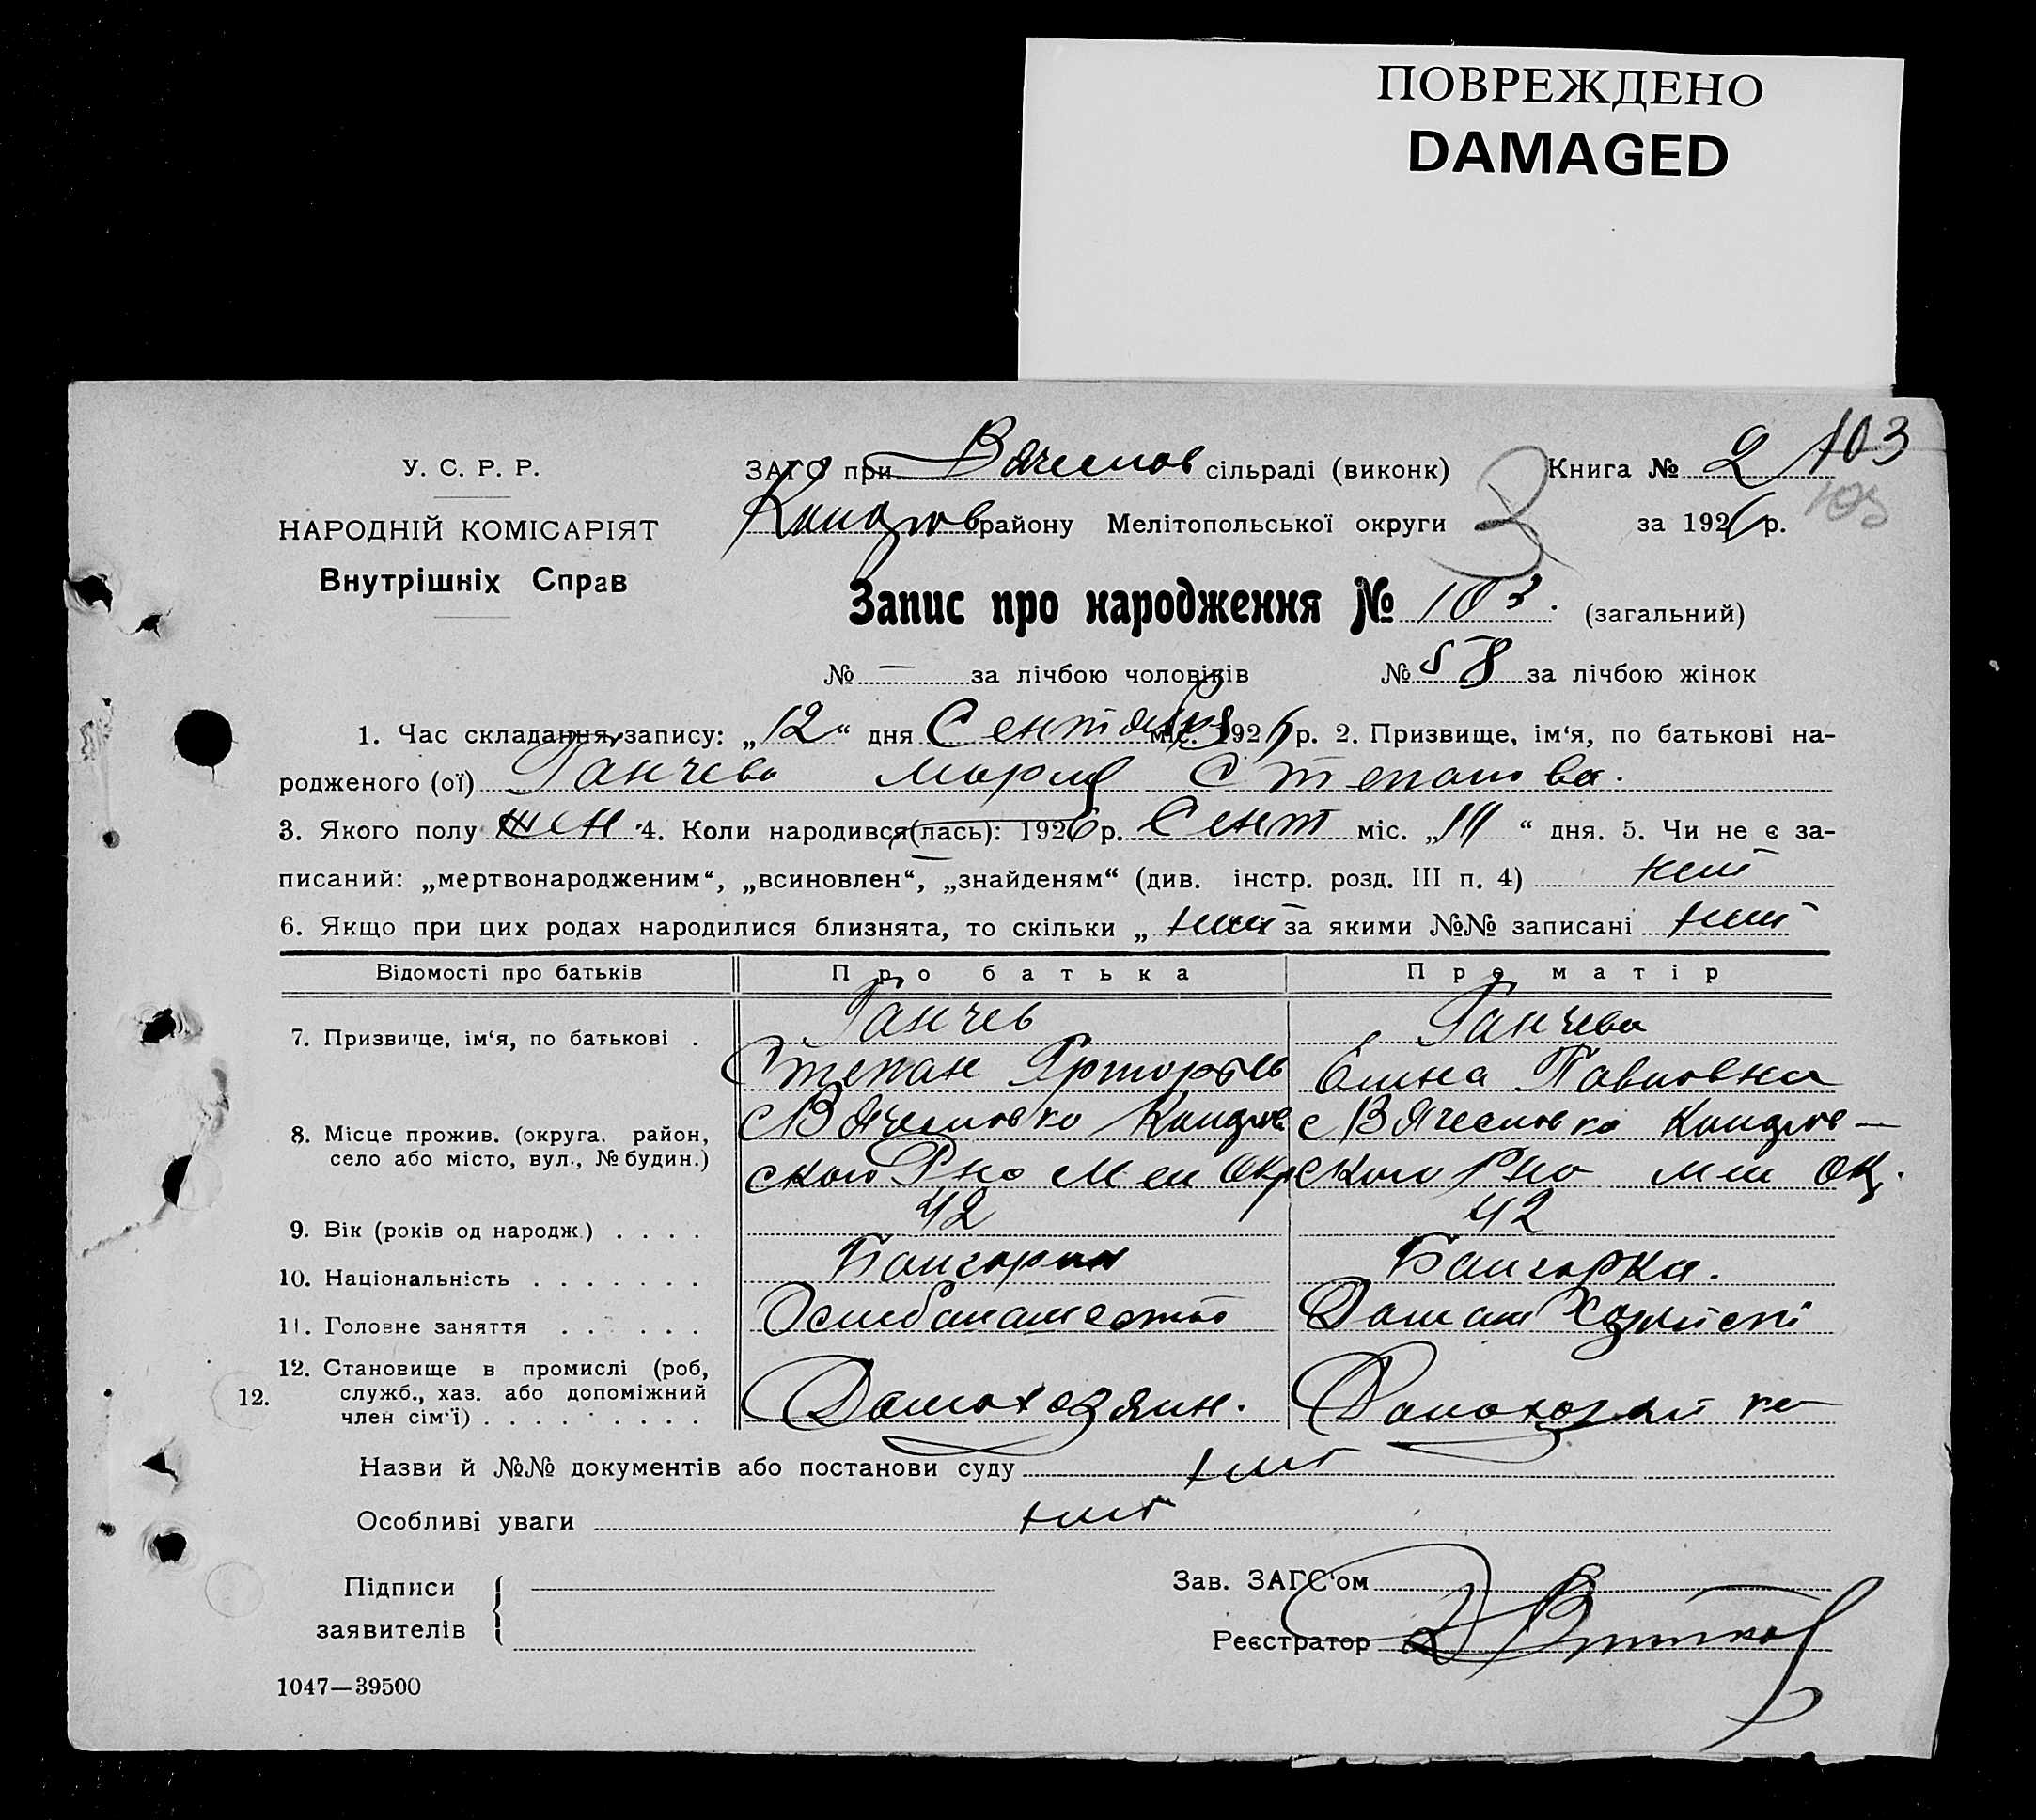 ПОВРЕЖДЕНО
DAMAGED
У. С. Р. Р.
НАРОДНІЙ КОМІСАРІЯТ
Внутрішніх Справ
ЗАГС при Вячеслов сільраді (виконк)
району Мелітопольської округи
Книга № 2 103
за 1926 р.
103
3
Запис про народження № 103. (загальний)
№ — за лічбою чоловіків № 58 за лічбою жінок
1. Час складання запису: „12“ дня Сентября міс. 1926 р. 2. Призвище, ім‘я, по батькові на-
родженого (ої) Ганчева Мария Степанова.
3. Якого полу жен. 4. Коли народився (лась): 1926 р. Сент міс. „ “ дня. 5. Чи не є за-
писаний: „мертвонародженим“, „всиновлен“, „знайденям“ (див. інстр. розд. III п. 4) нет
6. Якщо при цих родах народилися близнята, то скільки „ нет за якими №№ записані нет
Відомості про батьків Про батька Про матір
7. Призвище, ім‘я, по батькові . Ганчев Ганчева
Степан Елена Павловна
8. Місце прожив. (округа. район, с Вячеславка с Вячеславка
село або місто, вул., № будин.) ского Рна Мел Окр ского Рна Мел Ок.
9. Вік (років од народж.) . . . . 42 42
10. Національність . . . . . . . Болгарин Болгарка.
11. Головне заняття . . . . . . Домаш
12. Становище в промислі (роб,
служб., хаз. або допоміжний Домохозяин. Домохозяйка
член сім‘ї) . . . . . . . . .
12.
Назви й №№ документів або постанови суду нет
Особливі уваги нет
Підписи
заявителів
Зав. ЗАГС‘ом
Реєстратор
1047—39500